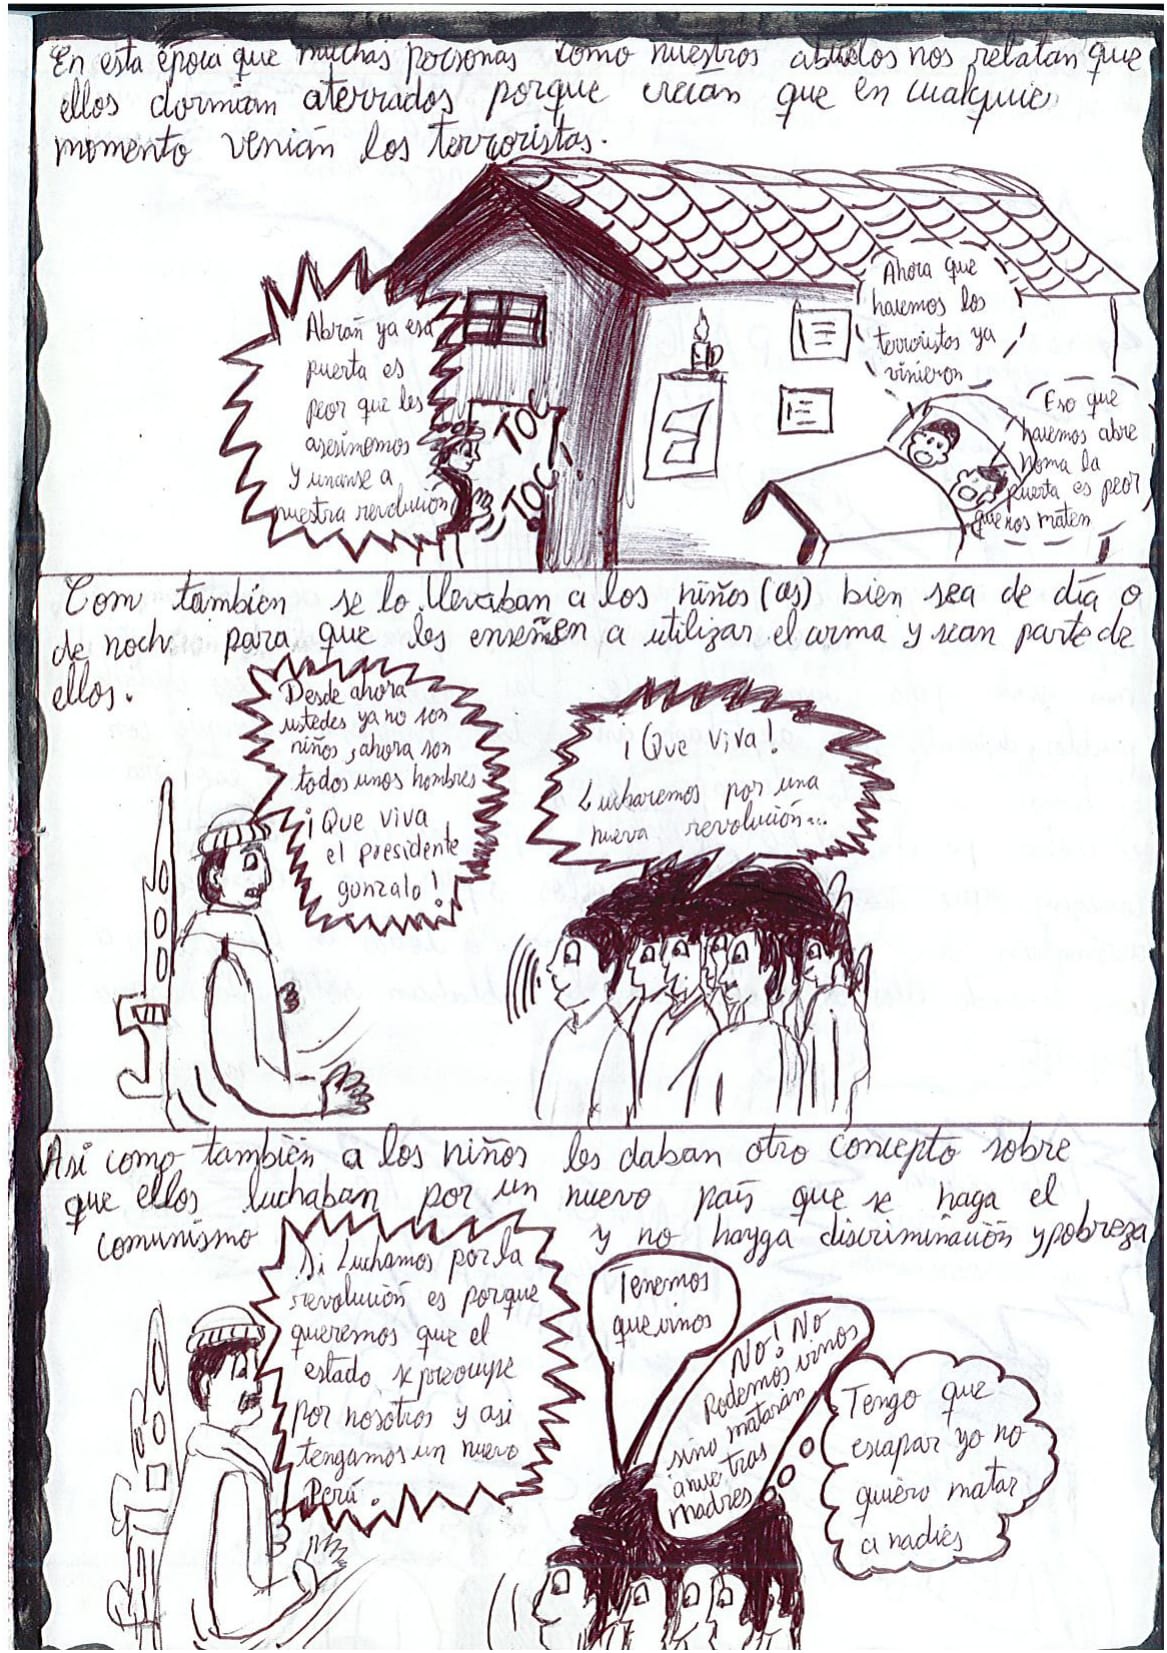 En esta época que muchas personas como nuestros abuelos nos relatan que
ellos dormian aterrados porque creían que en cualquier
momento venían los terroristas.
Abrañ ya esa
puerta es
peor que les
asesinemos
y unanse a
nuestra revolución
TOC
TOC
Ahora que
haremos los
terroristas ya
vinieron
Eso que
haremos abre
noma la
puerta es peor
que nos maten
Com también se lo llevaban a los niños (as) bien sea de día o
de noch para que les enseñen a utilizar el arma y sean parte de
ellos.
Desde ahora
ustedes ya no son
niños, ahora son
todos unos hombres
¡Que viva
el presidente
gonzalo!
¡Que viva!
Lucharemos por una
nueva revolución...
Asi como también a los niños les daban otro concepto sobre
que ellos luchaban por un nuevo país que se haga el
comunismo y no hayga discriminación y pobreza
Si Luchamos por la
revolución es porque
queremos que el
estado se preocupe
por nosotros y asi
tengamos un nuevo
Perú.
Tenemos
que irnos
No! No
Podemos irnos
sino matarán
a nuestras
madres
Tengo que
escapar yo no
quiero matar
a nadies